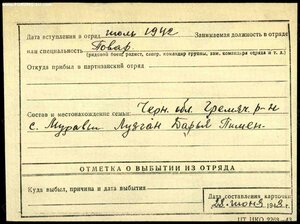 Дата вступления в отряд июль 1942 Занимаемая должность в отряде
или специальность Повар
(рядовой боец, радист, секр. командир группы, зам. командира отряда и т. д.)
Откуда прибыл в партизанский отряд
Состав и местонахождение семьи: Черн. обл. Гремяч. р-н
с. Муравьи Лузган Дарья Пимен.
ОТМЕТКА О ВЫБЫТИИ ИЗ ОТРЯДА
Куда выбыл, причина и дата выбытия
Дата составления карточки
28 июня 1948 г.